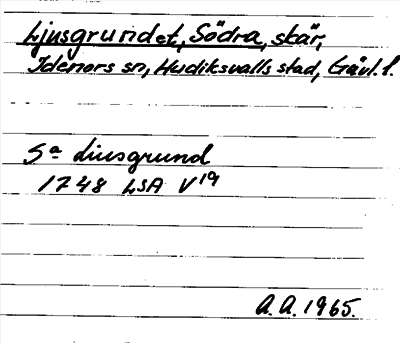 Ljusgrundet, Södra, skär,
Idenors sn, Hudiksvalls stad, Gävl. l.
Sa Liusgrund
1748 LSA V19
A. A. 1965.